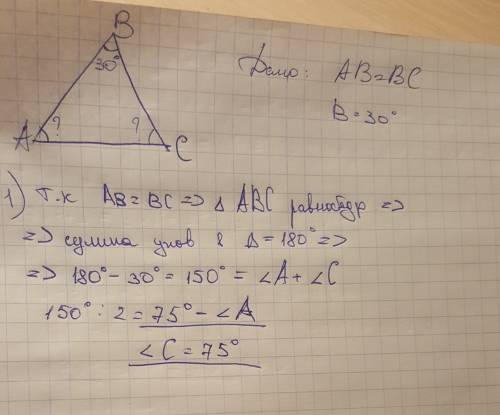 B
30°
A ? ? C
Дано: AB=BC
B=30°
1) Т.к AB=BC => Δ ABC равнобедр =>
=> сумма углов в Δ=180° =>
=> 180°-30°=150°=∠A+∠C
150°:2=75°-∠A
∠C=75°